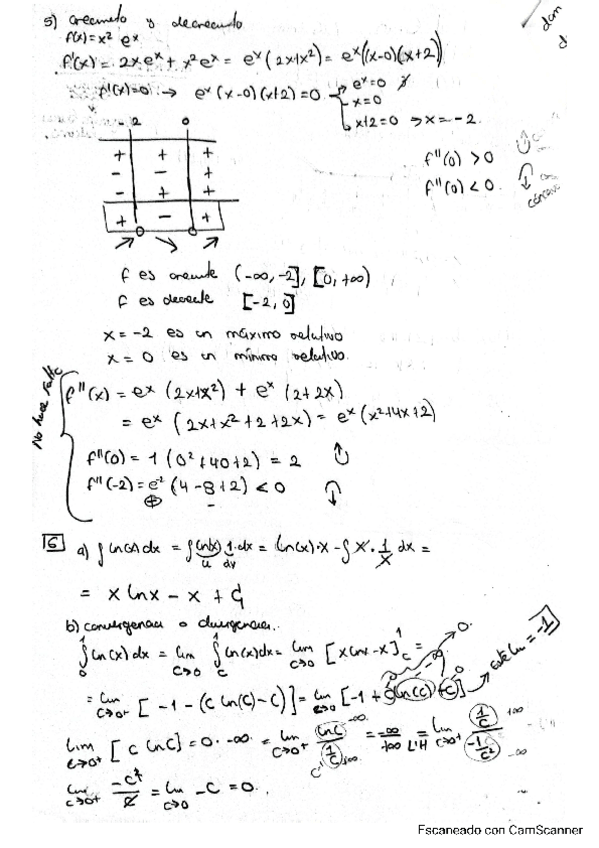 5) Creciendo y decreciendo
f(x) = x² eˣ
f'(x) = 2x eˣ + x² eˣ = eˣ (2x+x²) = eˣ((x-0)(x+2))
f'(x)=0 → eˣ (x-0)(x+2) = 0 eˣ=0 ∄
x=0
x+2=0 ⇒ x=-2
-2 0
+ + +
- - +
- + +
+ - +
f''(0) > 0
f''(0) < 0
f es creciente (-∞, -2], [0, +∞)
f es decrecte [-2, 0]
x = -2 es un máximo relativo
x = 0 es un mínimo relativo.
No hace falta
f''(x) = eˣ (2x+x²) + eˣ (2+2x)
= eˣ (2x+x²+2+2x) = eˣ (x²+4x+2)
f''(0) = 1 (0²+4·0+2) = 2
f''(-2) = e² (4-8+2) < 0
⊕ -
6 a) ∫ ln(x) dx = ∫ ln(x) 1·dx = ln(x)·x - ∫ x · 1/x dx =
u dv
= x lnx - x + C
b) convergencia o divergencia.
∫₀¹ ln(x) dx = lim c→0 ∫c¹ ln(x) dx = lim c→0 [x lnx - x]c¹ =
= lim c→0⁺ [-1 - (c ln(c) - c)] = lim c→0 [-1 + c ln(c) + c] este lim = -1
lim c→0⁺ [c lnc] = 0 · -∞ = lim c→0⁺ lnc / (1/c) = -∞/+∞ = L'H lim c→0⁺ (1/c) / (-1/c²)
lim c→0⁺ -c²/c = lim c→0 -c = 0.
Escaneado con CamScanner